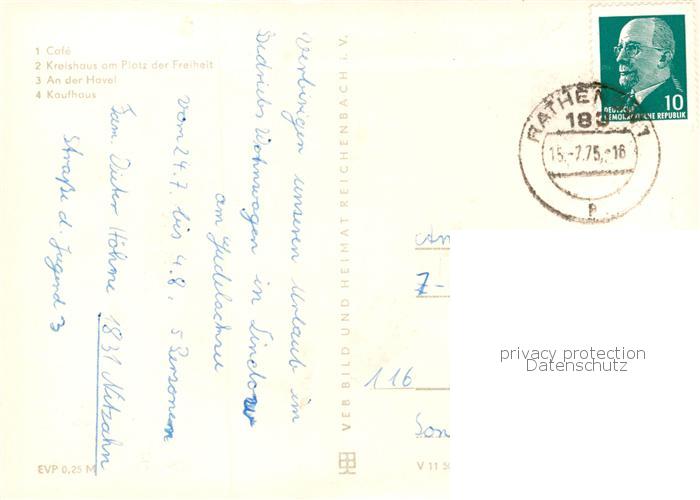 1 Café
2 Kreishaus am Platz der Freiheit
3 An der Havel
4 Kaufhaus
Verbringen unseren Urlaub im
Betriebs Wohnwagen in Lindow
am Gudelacksee
vom 24.7. bis 4.8. 5 Personen
Fam. Dieter Höhne 1831 Nitzahn
Straße d. Jugend 3
EVP 0,25 M
VEB BILD UND HEIMAT REICHENBACH i. V.
10
DEUTSCHE
DEMOKRATISCHE REPUBLIK
RATHENOW 1
183
15.-7.75.-16
An
7-
116
Son
V 11 50
privacy protection
Datenschutz